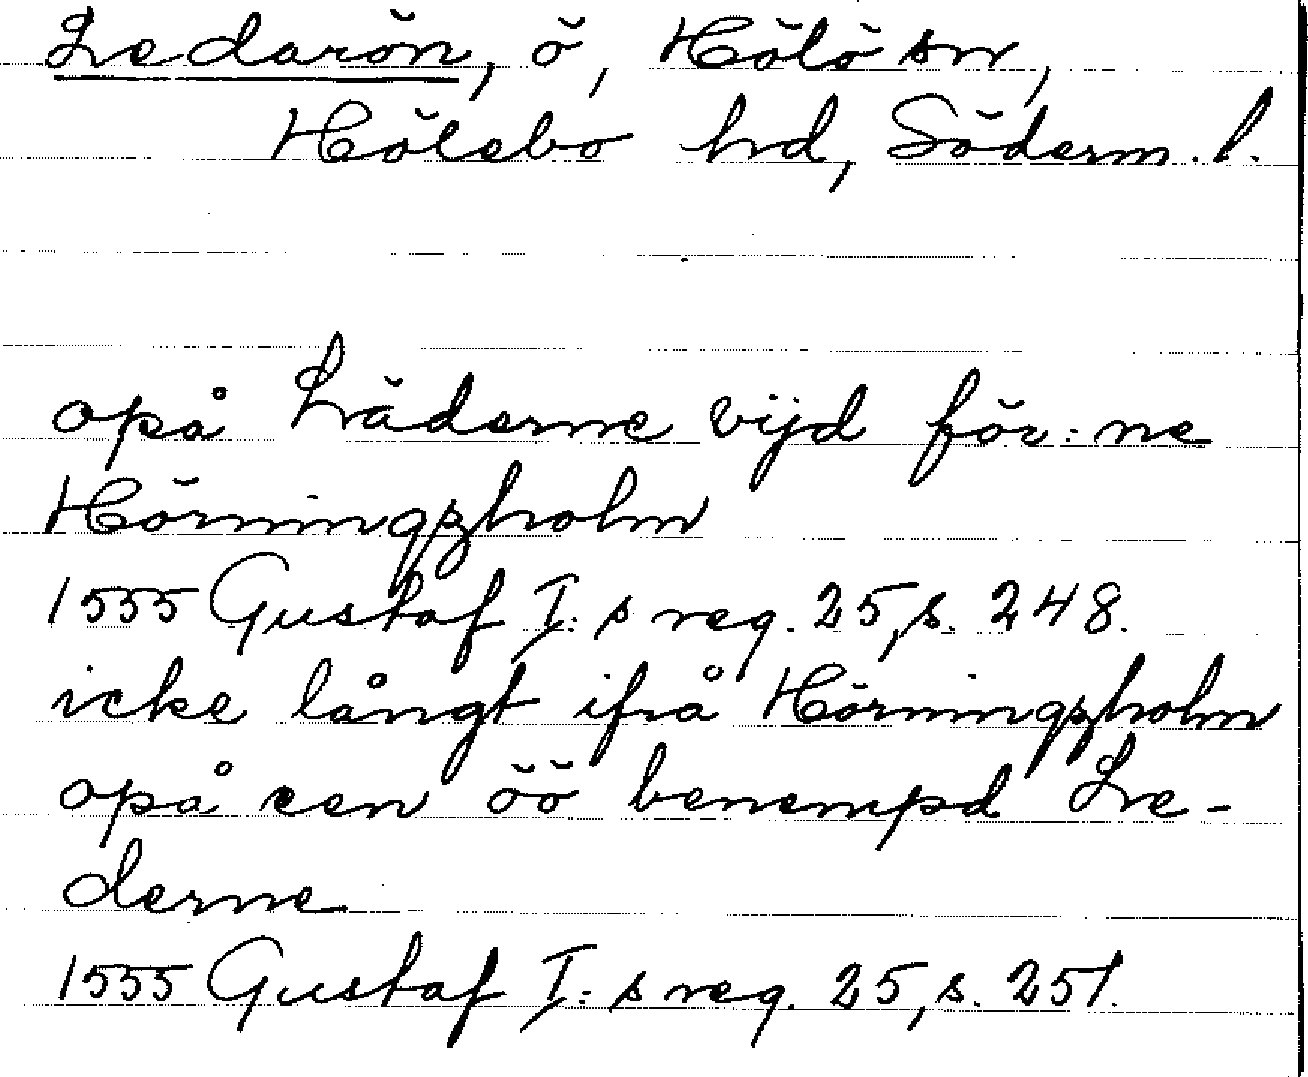 Ledarön, ö, Hölö sn,
Hölebo hd, Söderm. l.
opå Läderne vijd för:ne
Hörningzholm
1555 Gustaf I:s reg. 25, s. 248.
icke långt ifrå Hörningzholm
opå een öö benempd Le-
derne
1555 Gustaf I:s reg. 25, s. 251.